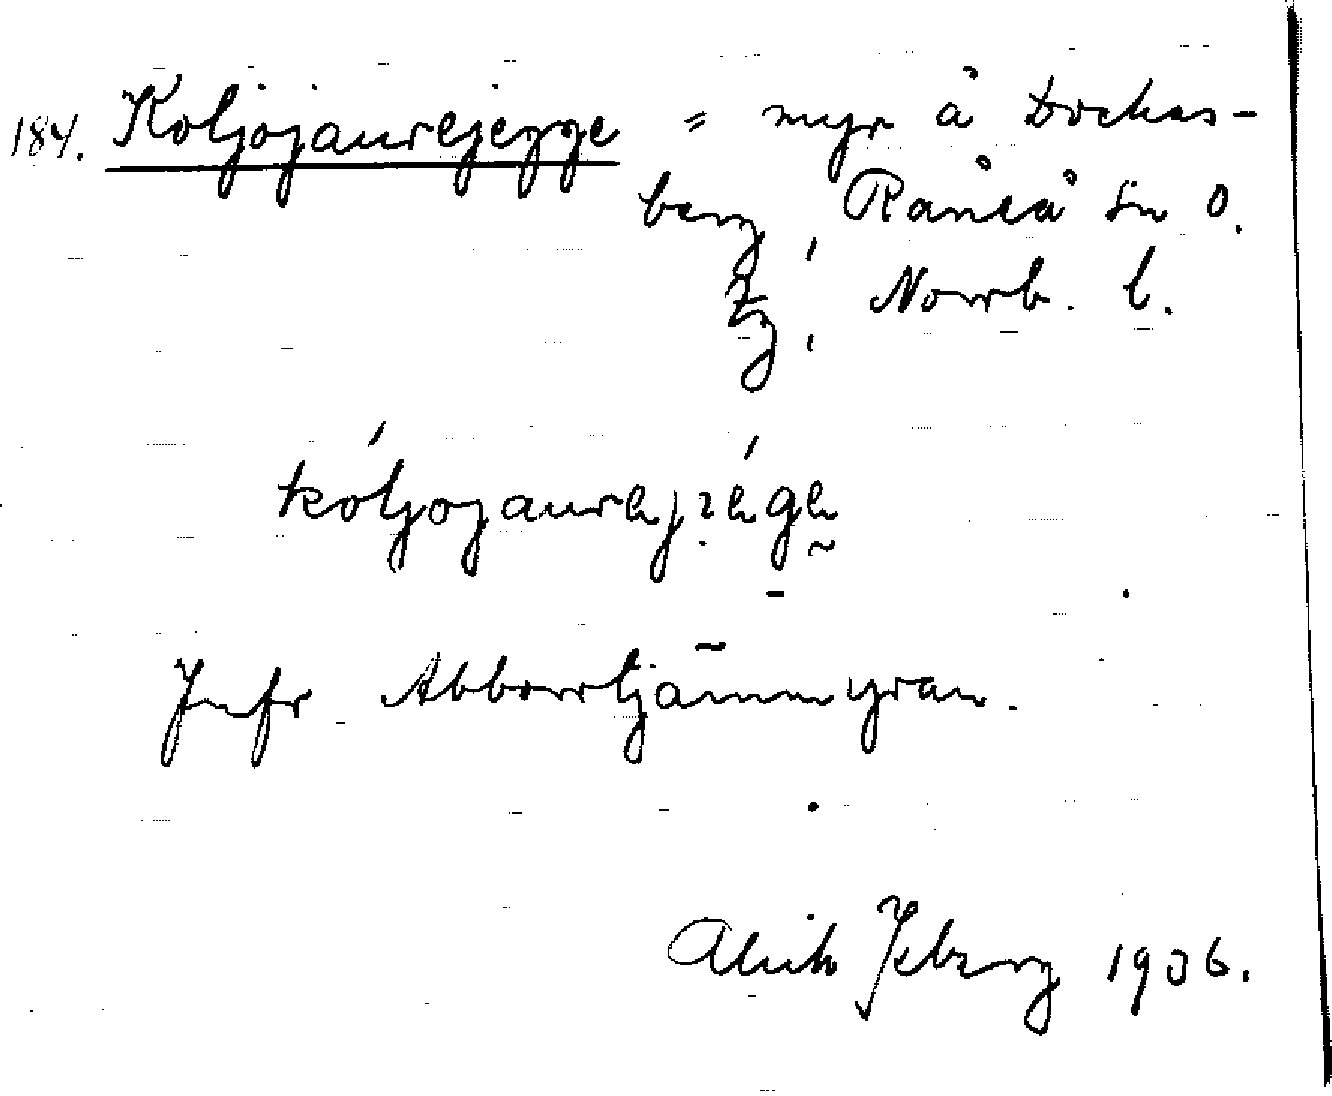 184. Koljojaurejegge = myr å Dockas-
berg, Råneå sn o.
tg, Norrb. l.
kóljojaurejɿége
Jmfr Abborrtjärnmyran.
Alrik 1936.